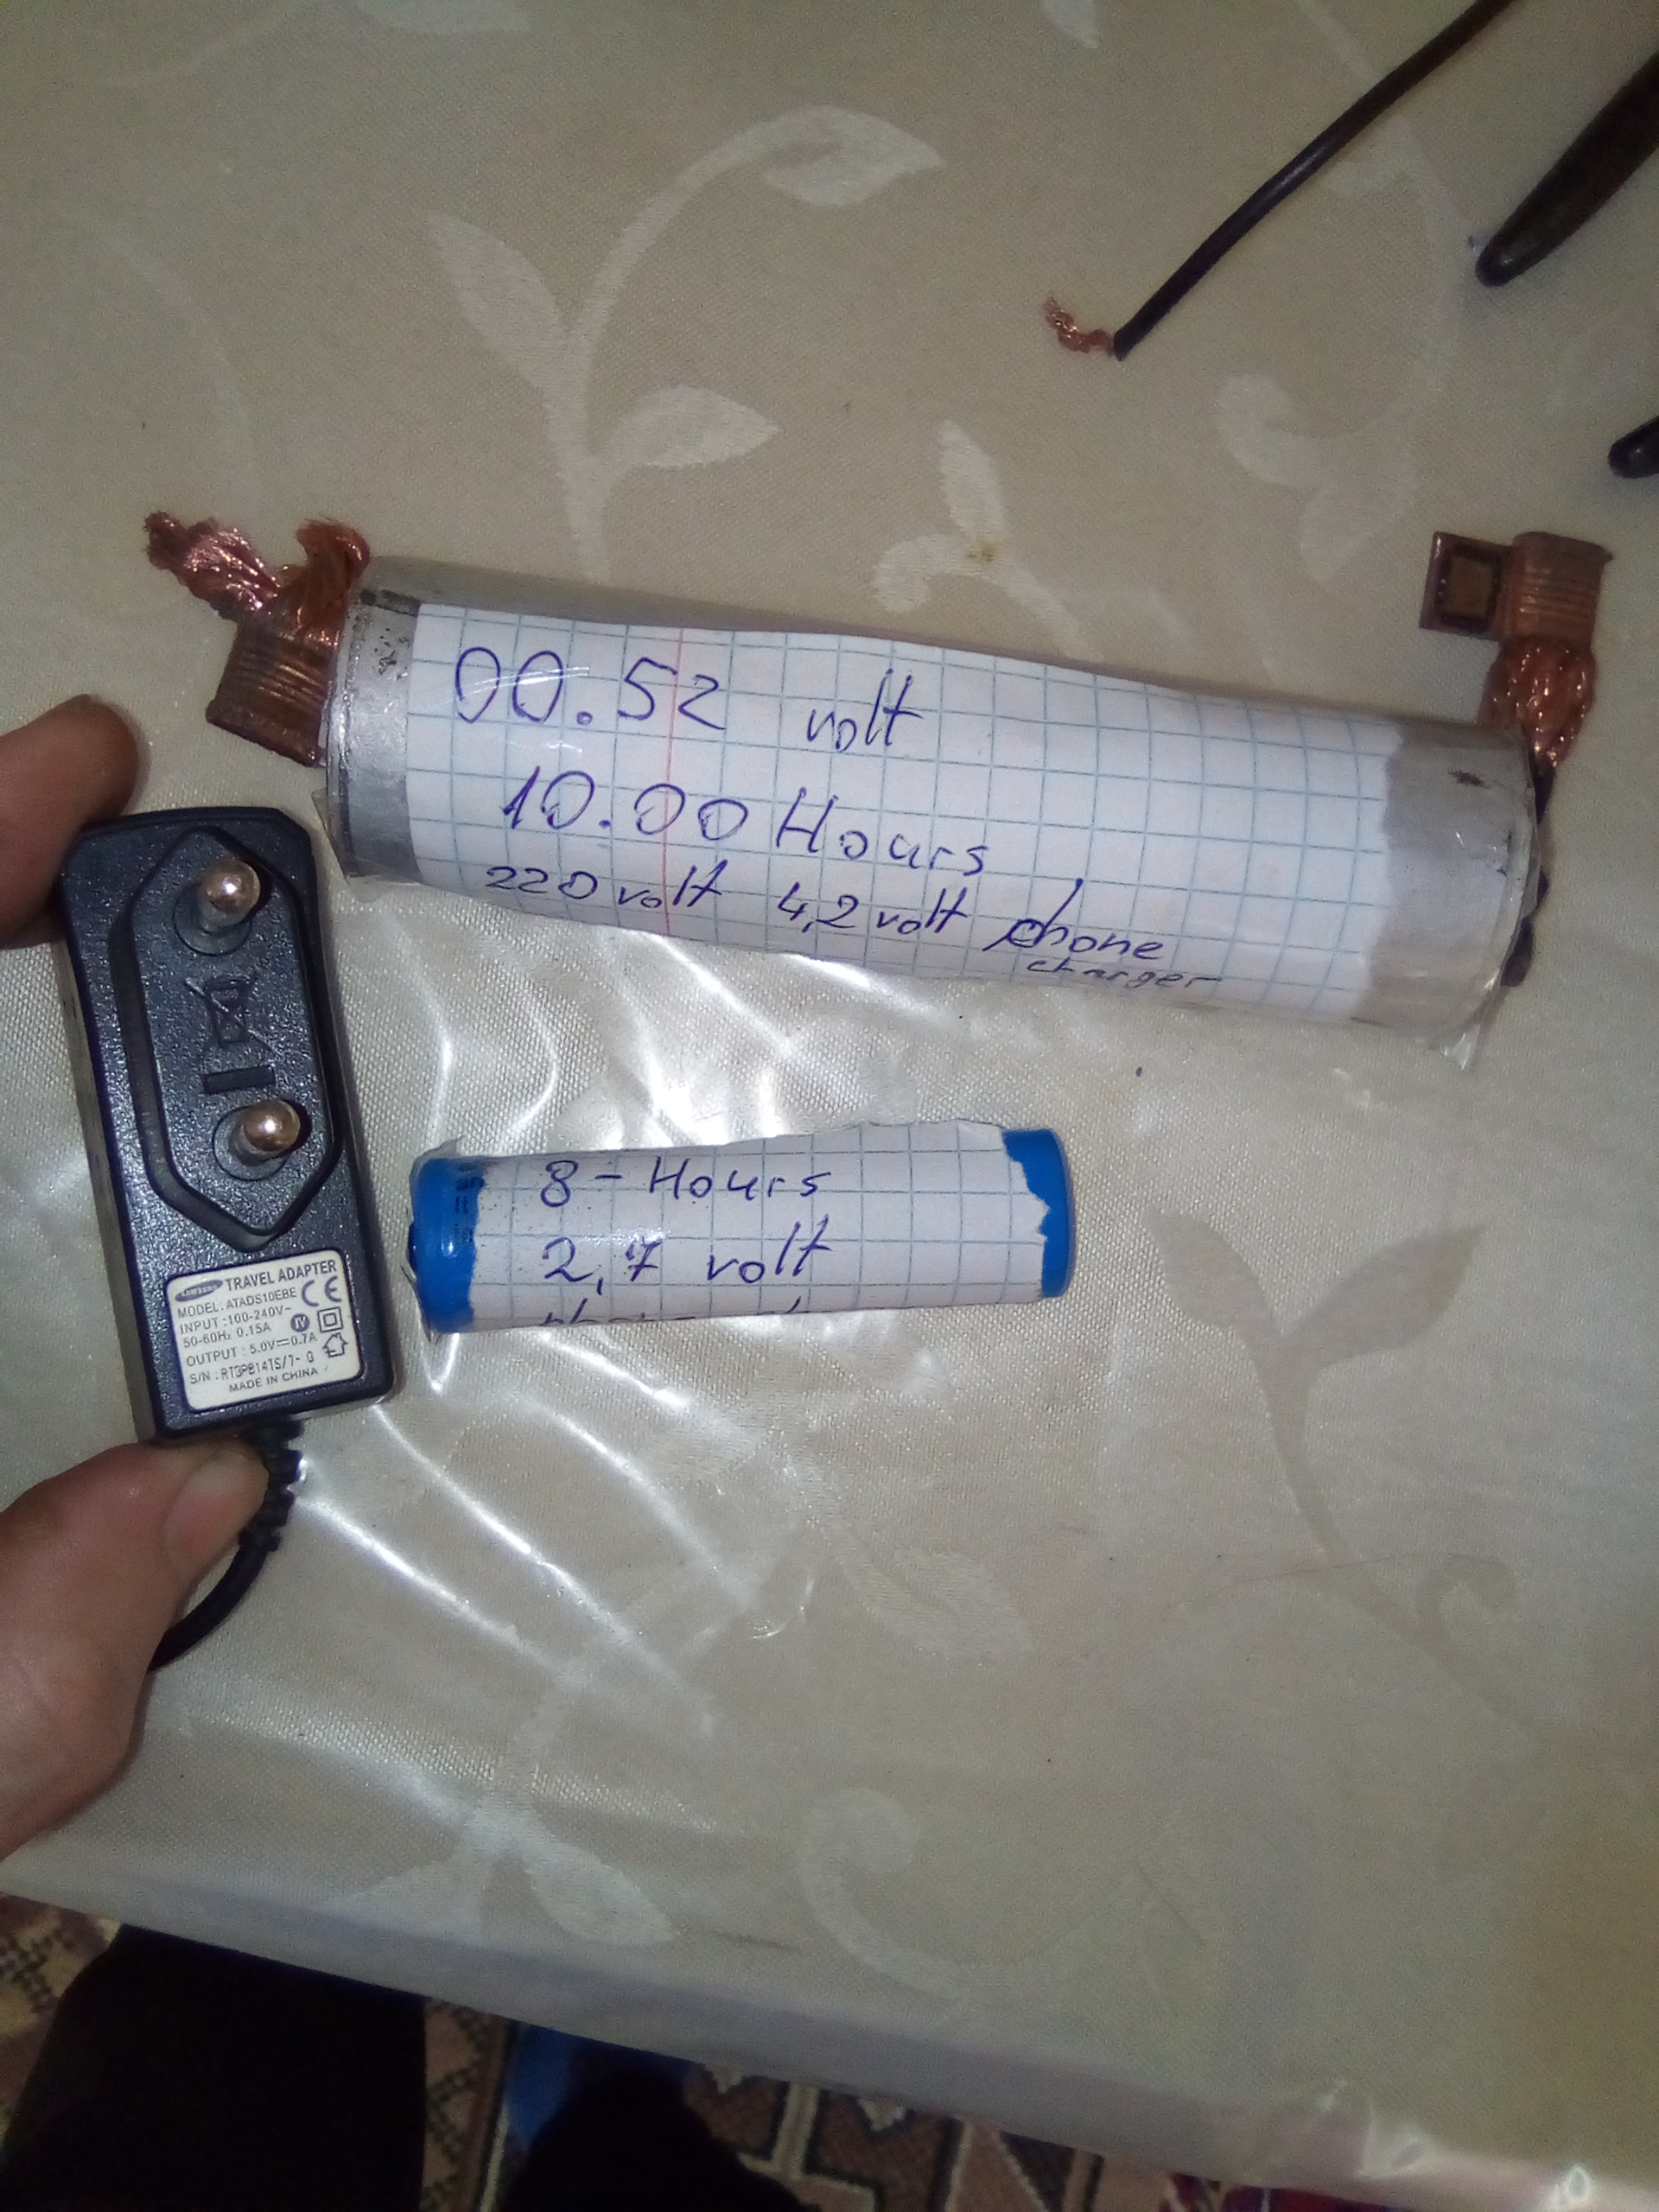 00.52 volt
10.00 Hours
220 volt 4,2 volt phone
charger
8 - Hours
2,7 volt
SAMSUNG TRAVEL ADAPTER
MODEL: ATADS10EBE
INPUT :100-240V~
50-60Hz 0.15A
OUTPUT : 5.0V⎓0.7A
MADE IN CHINA
CE
IV